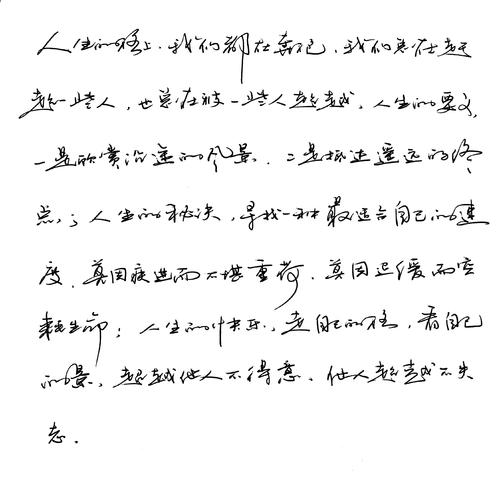 人生的路上，我们都在奔跑，我们总在超
越一些人，也总在被一些人超越。人生的要义，
一是欣赏沿途的风景，二是抵达遥远的终
点；人生的秘诀，寻找一种最适合自己的速
度，莫因疾进而不堪重荷，莫因迟缓而空
耗生命；人生的快乐，走自己的路，看自己
的景，超越他人不得意，他人超越不失
志。